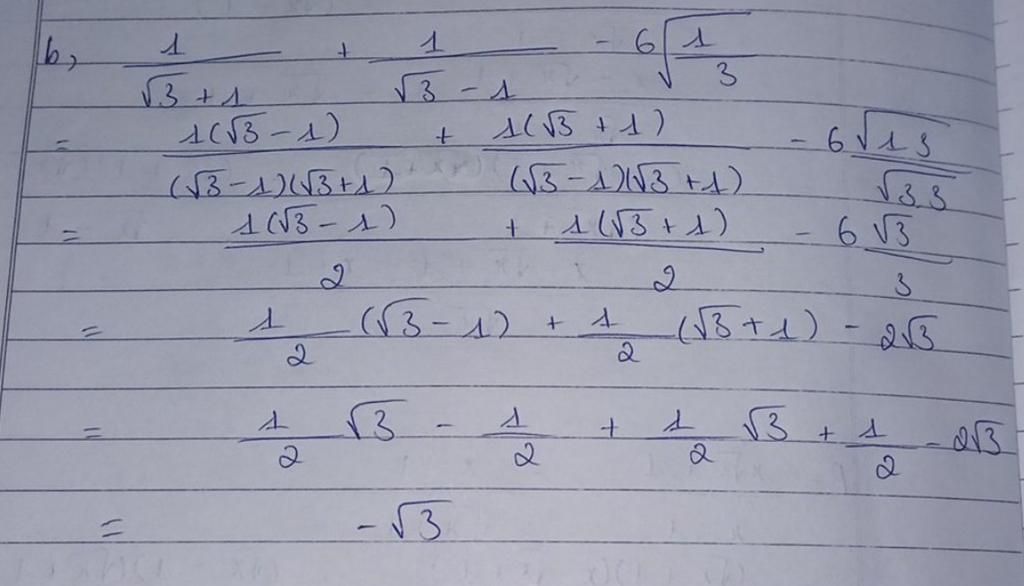 b, 1/(√3 + 1) + 1/(√3 - 1) - 6√(1/3)
= 1(√3 - 1)/((√3 - 1)(√3 + 1)) + 1(√3 + 1)/((√3 - 1)(√3 + 1)) - 6 √1.3/√3.3
= 1(√3 - 1)/2 + 1(√3 + 1)/2 - 6 √3/3
= 1/2 (√3 - 1) + 1/2 (√3 + 1) - 2√3
= 1/2 √3 - 1/2 + 1/2 √3 + 1/2 - 2√3
= -√3